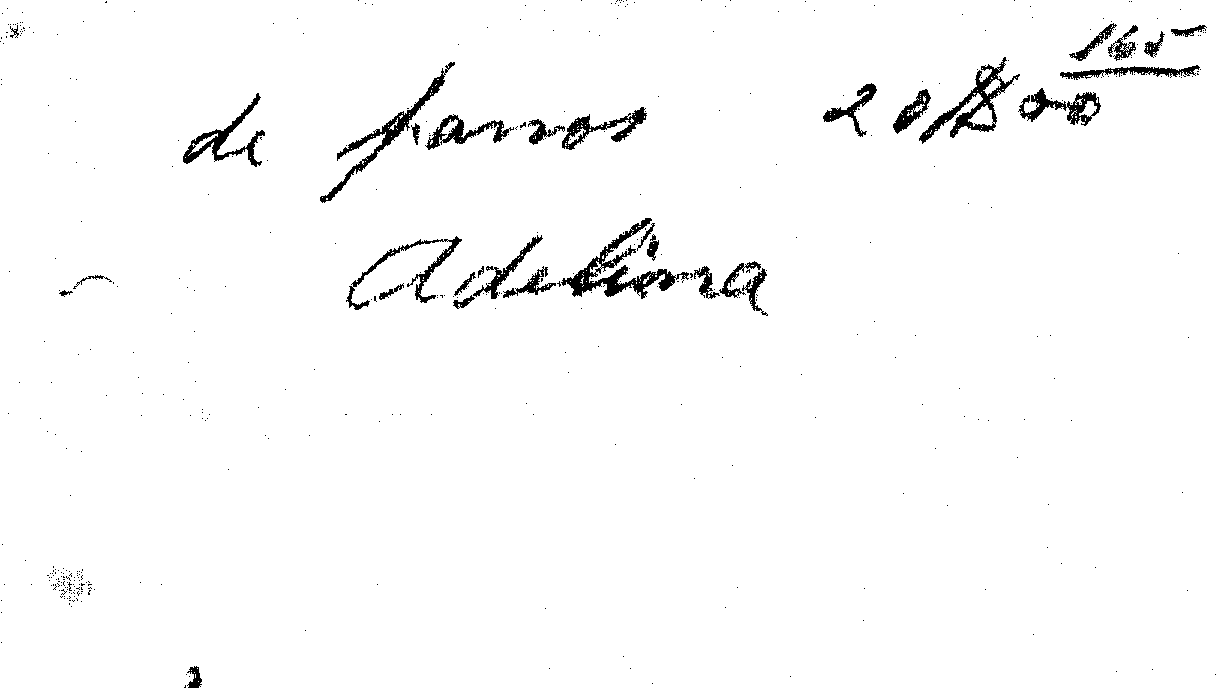 165
de panos 20$00
Adelina